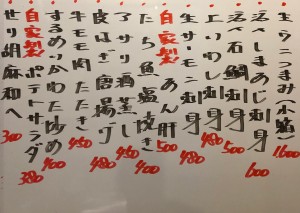 生ウニつまみ(小箱) 1600
活〆しまあじ刺身 600
活〆石鯛刺身 500
生サーモン刺身 480
自家製 あん肝 500
たら魚(塩焼き) 400
アサリ酒蒸し 450
皮はぎ唐揚げ 480
牛モモ肉たたき 450
するめいかわた炒め 400
自家製 ポテトサラダ 380
せり胡麻和へ 300